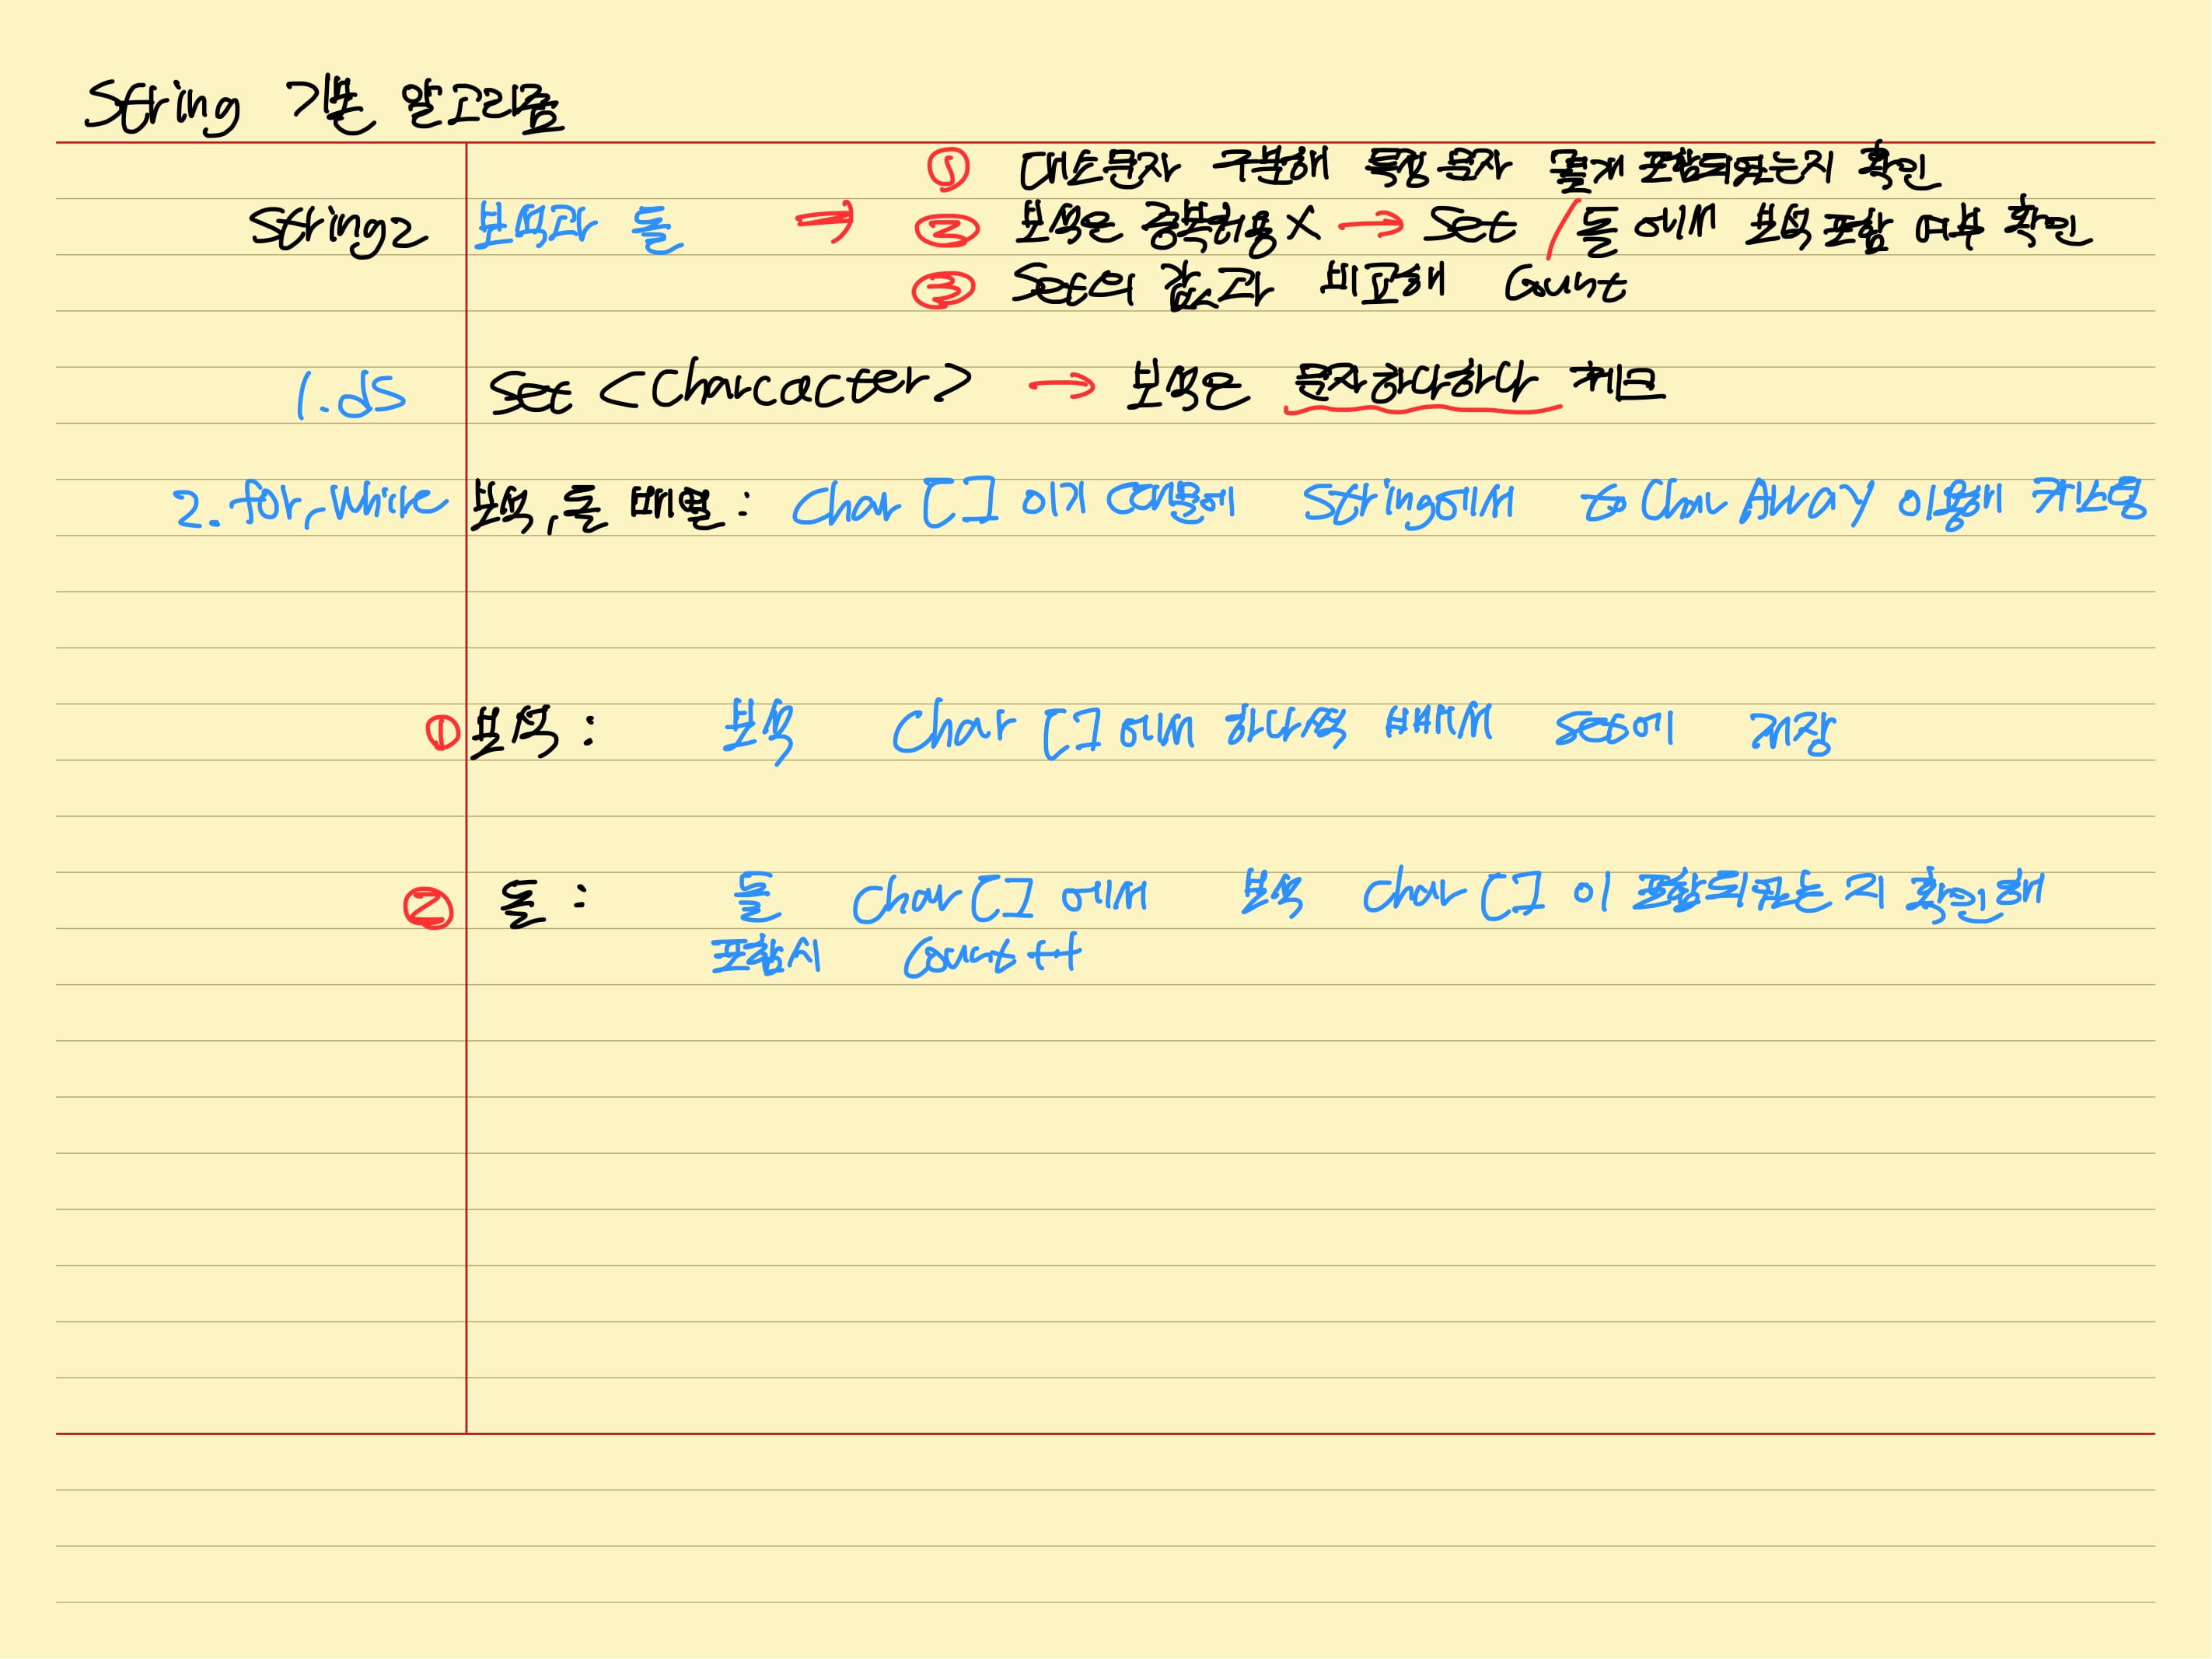 String 기본 알고리즘
① 대소문자 구분해 특정 문자 몇개 포함되있는지 확인
String2 보석과 돌 → ② 보석은 중복허용 X → Set / 돌 에서 보석 포함 여부 확인
③ Set의 값과 비교해 Count
1. ds Set <Character> → 보석은 문자하나하나 체크
2. for, while 보석, 돌 배열 : Char [] 이기 때문에 String에서 to Char Array 이용해
① 보석 : 보석 Char [] 에서 하나씩 빼서 set에 저장
② 돌 : 돌 Char [] 에서 보석 Char [] 이 포함되있는지 확인해
포함시 Count ++